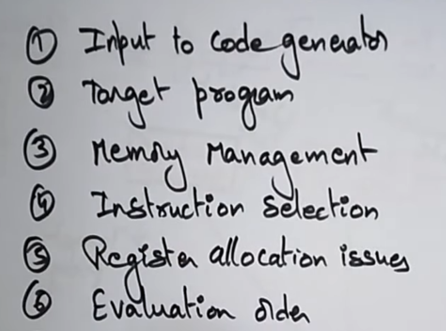 ① Input to code generator
② Target program
③ Memory Management
④ Instruction selection
⑤ Register allocation issues
⑥ Evaluation order